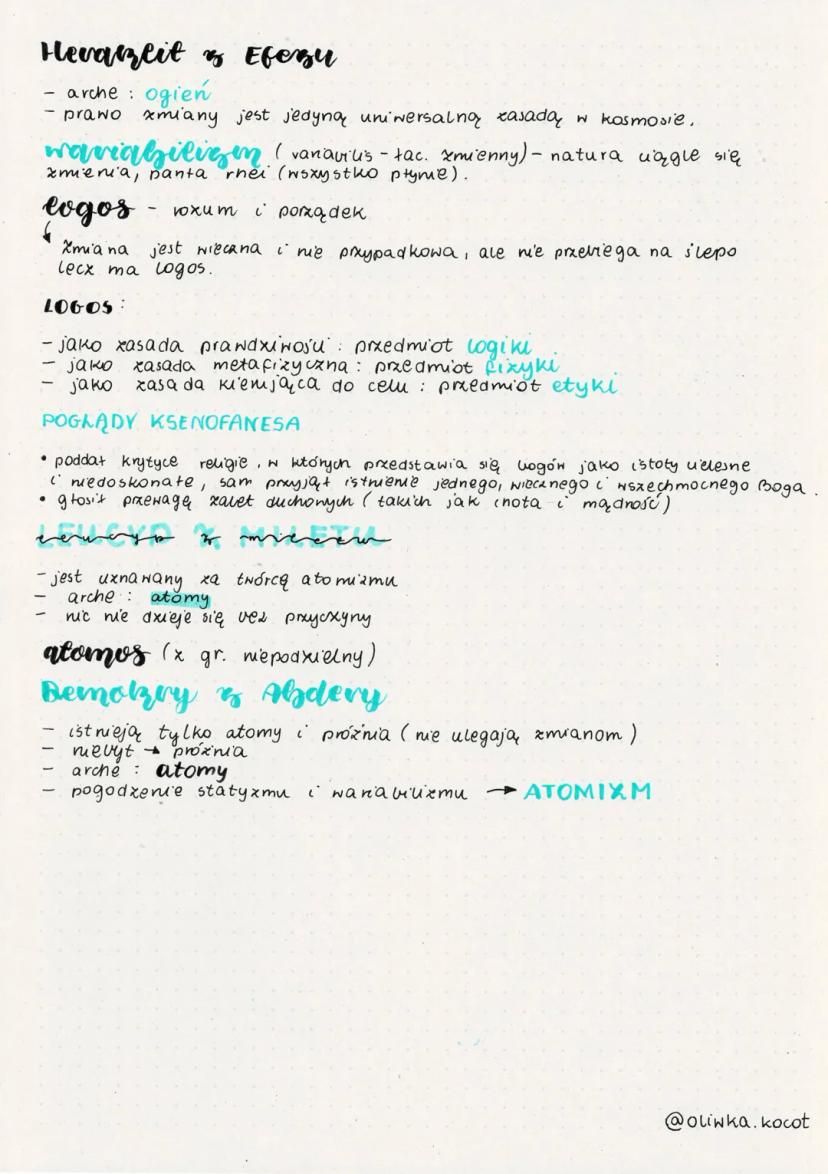 Heraklit z Efezu
- arche : ogień
- prawo zmiany jest jedyną uniwersalną zasadą w kosmosie.
wariabilizm ( variabilis - łac. zmienny) - natura ciągle się
zmienia, panta rhei (wszystko płynie).
logos - rozum i porządek
zmiana jest wieczna i nie przypadkowa, ale nie przebiega na ślepo
lecz ma logos.
LOGOS:
- jako zasada prawdziwości : przedmiot logiki
- jako zasada metafizyczna : przedmiot fizyki
- jako zasada kierująca do celu : przedmiot etyki
POGLĄDY KSENOFANESA
• poddał krytyce religie, w których przedstawia się bogów jako istoty cielesne
i niedoskonałe, sam przyjął istnienie jednego, wiecznego i wszechmocnego Boga.
• głosił przewagę zalet duchowych ( takich jak cnota i mądrość)
LEUCYP Z MILETU
- jest uznawany za twórcę atomizmu
- arche : atomy
- nic nie dzieje się bez przyczyny
atomos (z gr. niepodzielny)
Demokryt z Abdery
- istnieją tylko atomy i próżnia ( nie ulegają zmianom )
- niebyt → próżnia
- arche : atomy
- pogodzenie statyzmu i wariabilizmu → ATOMIZM
@oliwka.kocot